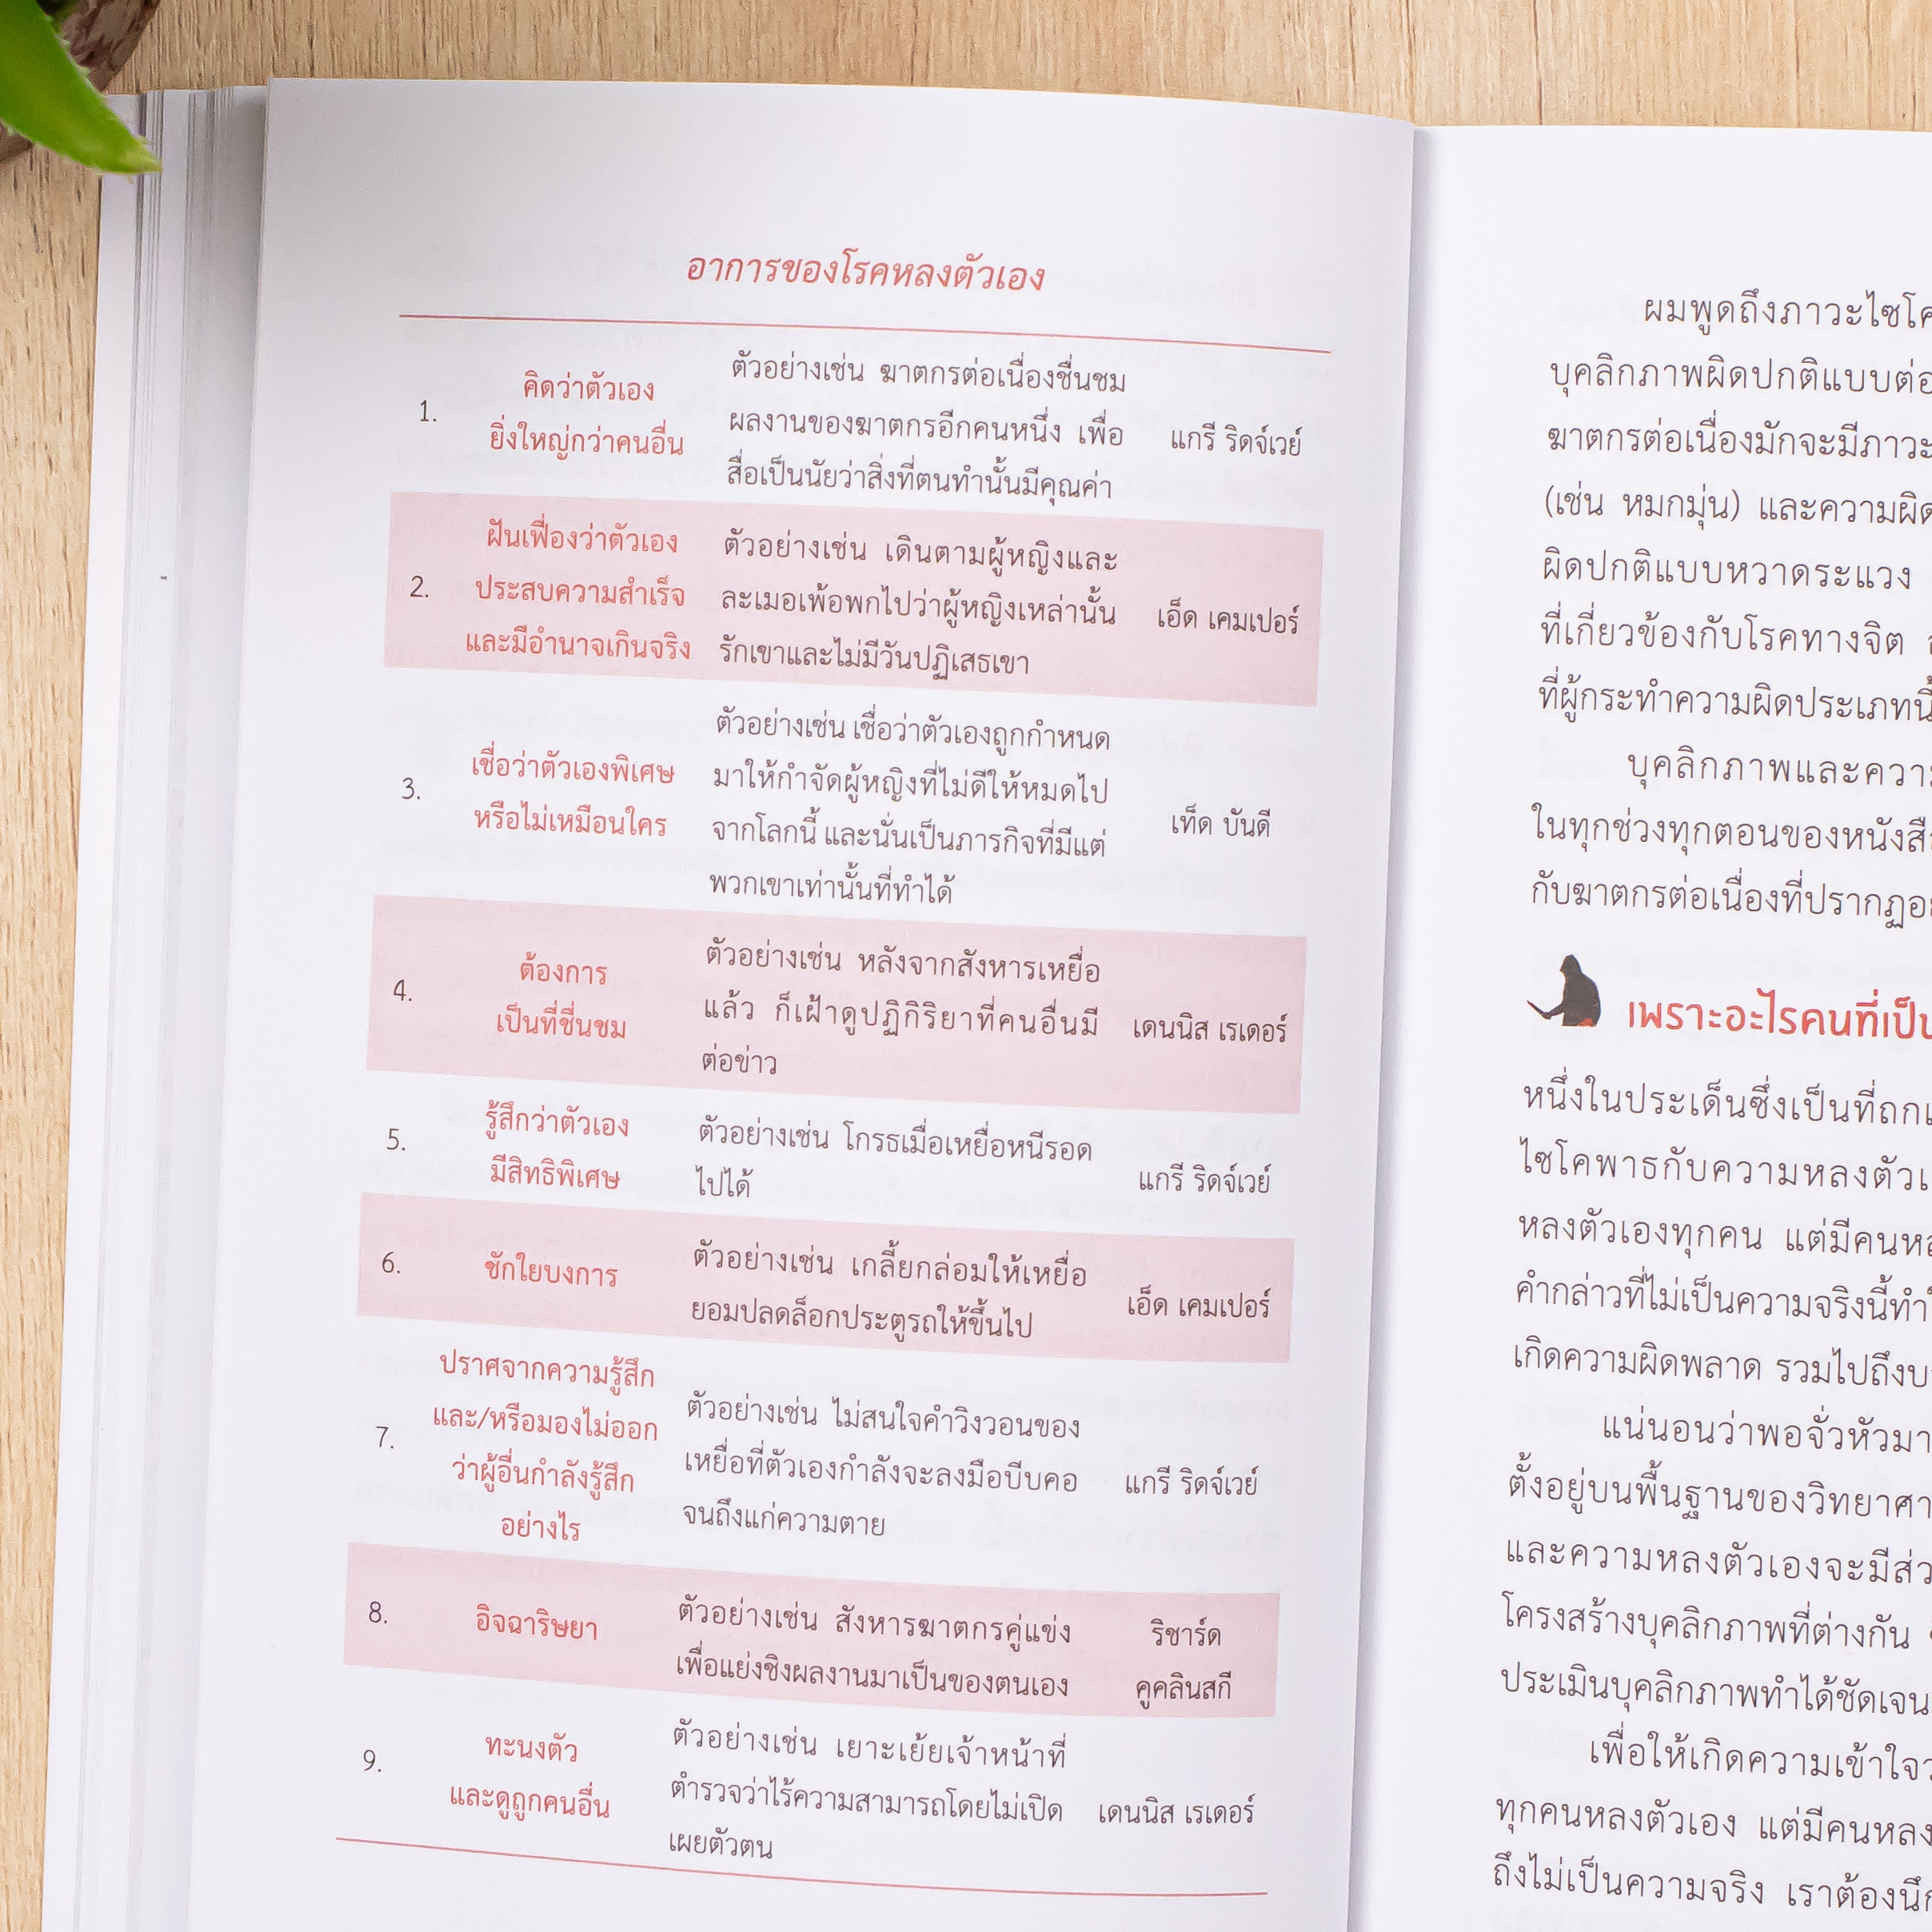 อาการของโรคหลงตัวเอง
1.
คิดว่าตัวเอง
ยิ่งใหญ่กว่าคนอื่น
ตัวอย่างเช่น ฆาตกรต่อเนื่องชื่นชม
ผลงานของฆาตกรอีกคนหนึ่ง เพื่อ
สื่อเป็นนัยว่าสิ่งที่ตนทำนั้นมีคุณค่า
แกรี ริดจ์เวย์
2.
ฝันเฟื่องว่าตัวเอง
ประสบความสำเร็จ
และมีอำนาจเกินจริง
ตัวอย่างเช่น เดินตามผู้หญิงและ
ละเมอเพ้อพกไปว่าผู้หญิงเหล่านั้น
รักเขาและไม่มีวันปฏิเสธเขา
เอ็ด เคมเปอร์
3.
เชื่อว่าตัวเองพิเศษ
หรือไม่เหมือนใคร
ตัวอย่างเช่น เชื่อว่าตัวเองถูกกำหนด
มาให้กำจัดผู้หญิงที่ไม่ดีให้หมดไป
จากโลกนี้ และนั่นเป็นภารกิจที่มีแต่
พวกเขาเท่านั้นที่ทำได้
เท็ด บันดี
4.
ต้องการ
เป็นที่ชื่นชม
ตัวอย่างเช่น หลังจากสังหารเหยื่อ
แล้ว ก็เฝ้าดูปฏิกิริยาที่คนอื่นมี
ต่อข่าว
เดนนิส เรเดอร์
5.
รู้สึกว่าตัวเอง
มีสิทธิพิเศษ
ตัวอย่างเช่น โกรธเมื่อเหยื่อหนีรอด
ไปได้
แกรี ริดจ์เวย์
6.
ชักใยบงการ
ตัวอย่างเช่น เกลี้ยกล่อมให้เหยื่อ
ยอมปลดล็อกประตูรถให้ขึ้นไป
เอ็ด เคมเปอร์
7.
ปราศจากความรู้สึก
และ/หรือมองไม่ออก
ว่าผู้อื่นกำลังรู้สึก
อย่างไร
ตัวอย่างเช่น ไม่สนใจคำวิงวอนของ
เหยื่อที่ตัวเองกำลังจะลงมือบีบคอ
จนถึงแก่ความตาย
แกรี ริดจ์เวย์
8.
อิจฉาริษยา
ตัวอย่างเช่น สังหารฆาตกรคู่แข่ง
เพื่อแย่งชิงผลงานมาเป็นของตนเอง
ริชาร์ด
คูคลินสกี
9.
ทะนงตัว
และดูถูกคนอื่น
ตัวอย่างเช่น เยาะเย้ยเจ้าหน้าที่
ตำรวจว่าไร้ความสามารถโดยไม่เปิด
เผยตัวตน
เดนนิส เรเดอร์
ผมพูดถึงภาวะไซโค
บุคลิกภาพผิดปกติแบบต่อ
ฆาตกรต่อเนื่องมักจะมีภาวะ
(เช่น หมกมุ่น) และความผิด
ผิดปกติแบบหวาดระแวง
ที่เกี่ยวข้องกับโรคทางจิต
ที่ผู้กระทำความผิดประเภทนี้
บุคลิกภาพและความ
ในทุกช่วงทุกตอนของหนังสือ
กับฆาตกรต่อเนื่องที่ปรากฏอยู่
เพราะอะไรคนที่เป็น
หนึ่งในประเด็นซึ่งเป็นที่ถกเ
ไซโคพาธกับความหลงตัวเ
หลงตัวเองทุกคน แต่มีคนหล
คำกล่าวที่ไม่เป็นความจริงนี้ทำใ
เกิดความผิดพลาด รวมไปถึงบ
แน่นอนว่าพอจั่วหัวมา
ตั้งอยู่บนพื้นฐานของวิทยาศา
และความหลงตัวเองจะมีส่ว
โครงสร้างบุคลิกภาพที่ต่างกัน
ประเมินบุคลิกภาพทำได้ชัดเจน
เพื่อให้เกิดความเข้าใจว
ทุกคนหลงตัวเอง แต่มีคนหลง
ถึงไม่เป็นความจริง เราต้องนึก